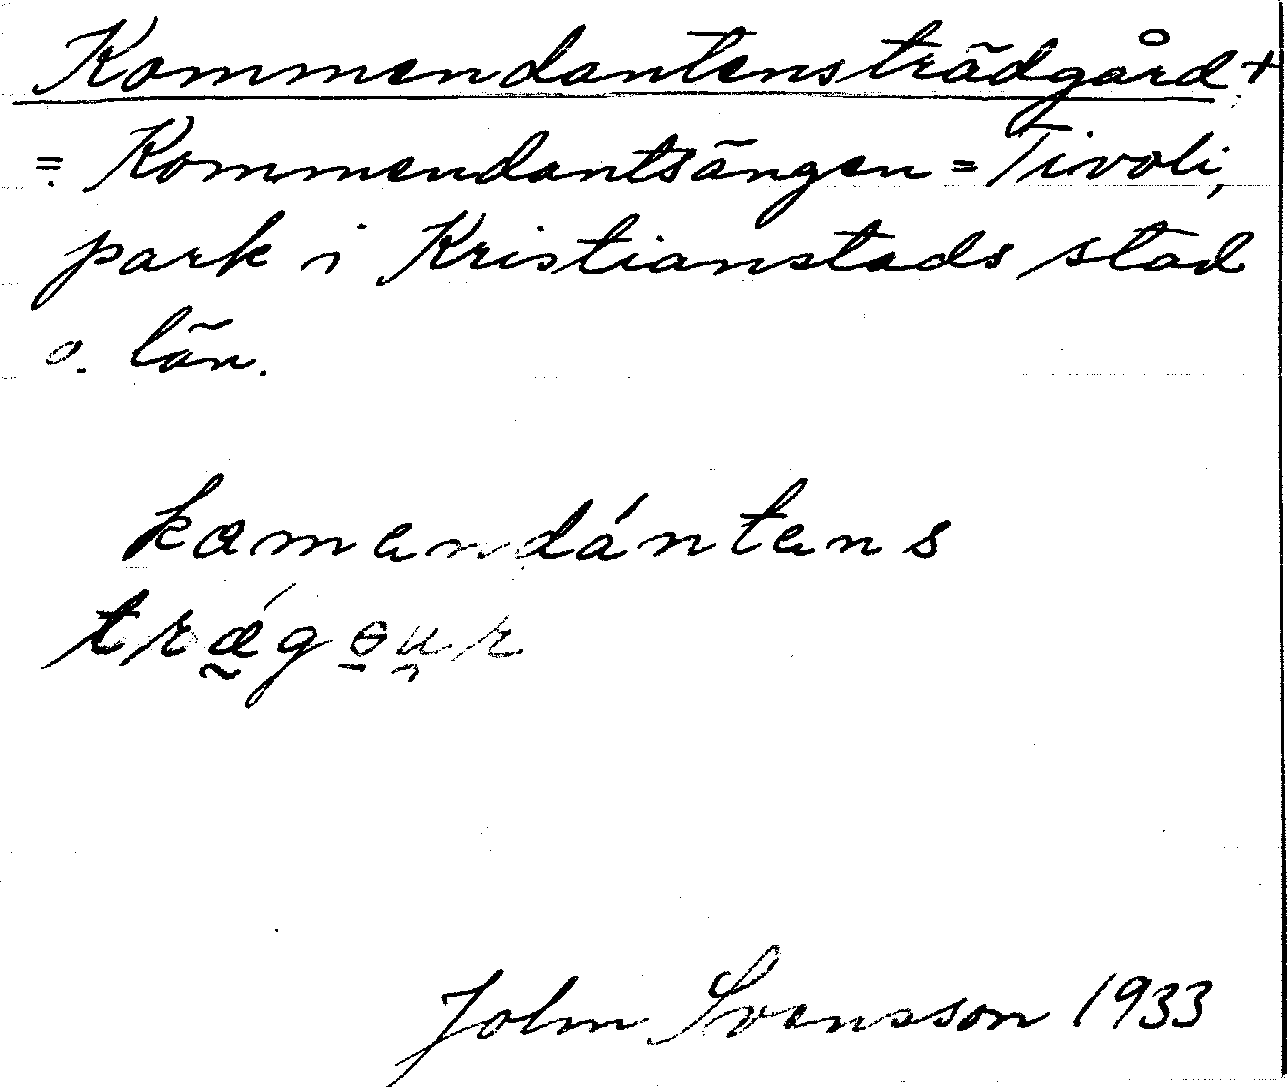 Kommendantensträdgård +
= Kommendantsängen = Tivoli,
park i Kristianstads stad
o. län.
kæmendántens
trǽgɵu̯r
John Svensson 1933